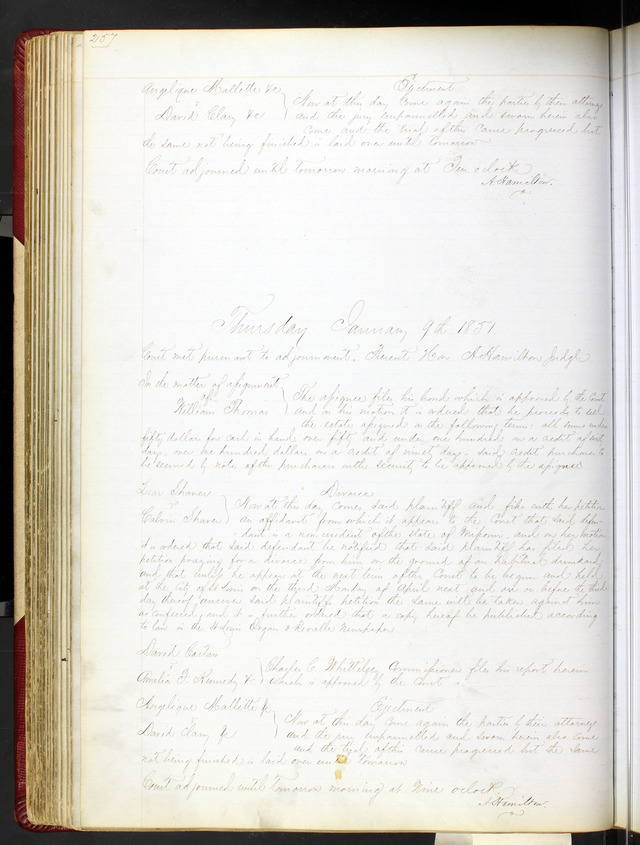 257
Angelique Mallette &c
vs
David Clary &c
Ejectment
Now at this day come again the parties by their attorneys
and the jury empannelled and sworn herein also
come and the trial of this cause progressed but
the same not being finished is laid over until tomorrow
Court adjourned until tomorrow morning at Ten oclock
A Hamilton.
Thursday January 9th 1851
Court met pursuant to adjournment. Present Hon A Hamilton Judge
In the matter of assignment
of
William Thomas
The assignee files his bond which is approved by the Court
and on his motion it is ordered that he proceeds to sell
the estate assigned on the following terms: all sums under
fifty dollars for cash in hand over fifty and under one hundred on a credit of sixty
days. over one hundred dollars on a credit of ninety days. said credit purchases to
be secured by notes of the purchasers with security to be approved by the assignee
Shaver
vs
Calvin Shaver
Divorce
Now at this day comes said plaintiff and files with her petition
an affidavit from which it appears to the Court that said defen-
dant is a non resident of the state of Missouri and on her motion
it is ordered that said defendant be notified that said plaintiff has filed her
petition praying for a divorce from him on the ground of an habitual drunkard
and that unless he appear at the next term of this Court to be begun and held
at the city of St Louis on the third Monday of April next and on or before the third
day thereof answer said plaintiffs petition the same will be taken against him
as confessed and it is further ordered that a copy hereof be published according
to law in the Organ & Reveille newspaper
David
vs
Amelia J. Kennedy &c
Charles C. Whittelsey Commissioner files his report herein
which is approved by the Court
Angelique Mallette &c
vs
David &c
Ejectment
Now at this day come again the parties by their attorneys
and the jury empannelled and sworn herein also come
and the trial of this cause progressed but the same
not being finished is laid over until tomorrow
Court adjourned until tomorrow morning at Nine oclock
A Hamilton.